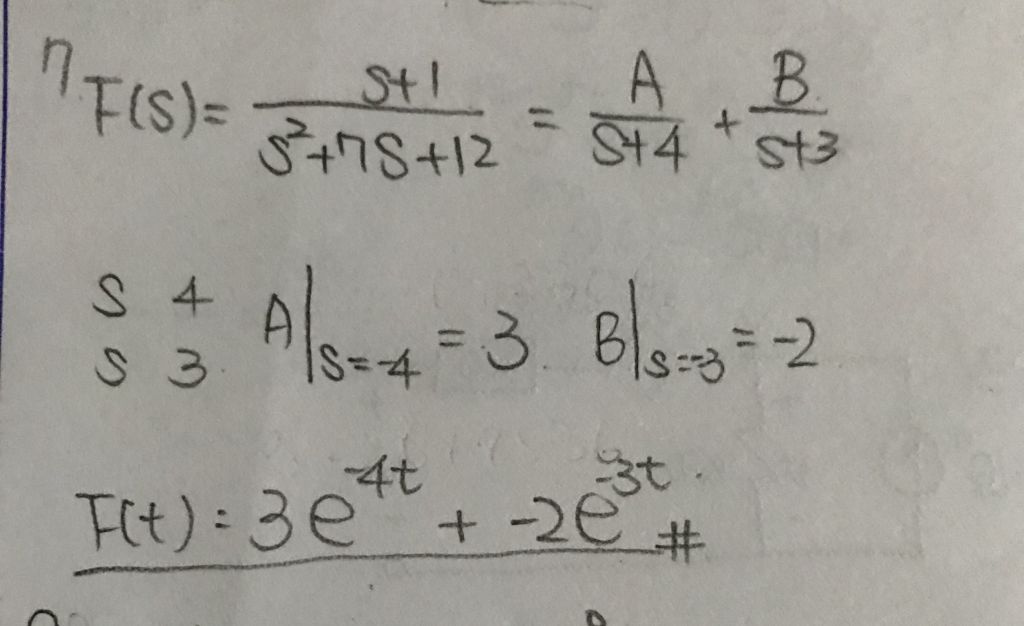 7 F(s)= s+1 / s²+7s+12 = A / s+4 + B / s+3
s 4 A|s=-4 = 3 B|s=-3 = -2
s 3
F(t) = 3e^-4t + -2e^-3t #